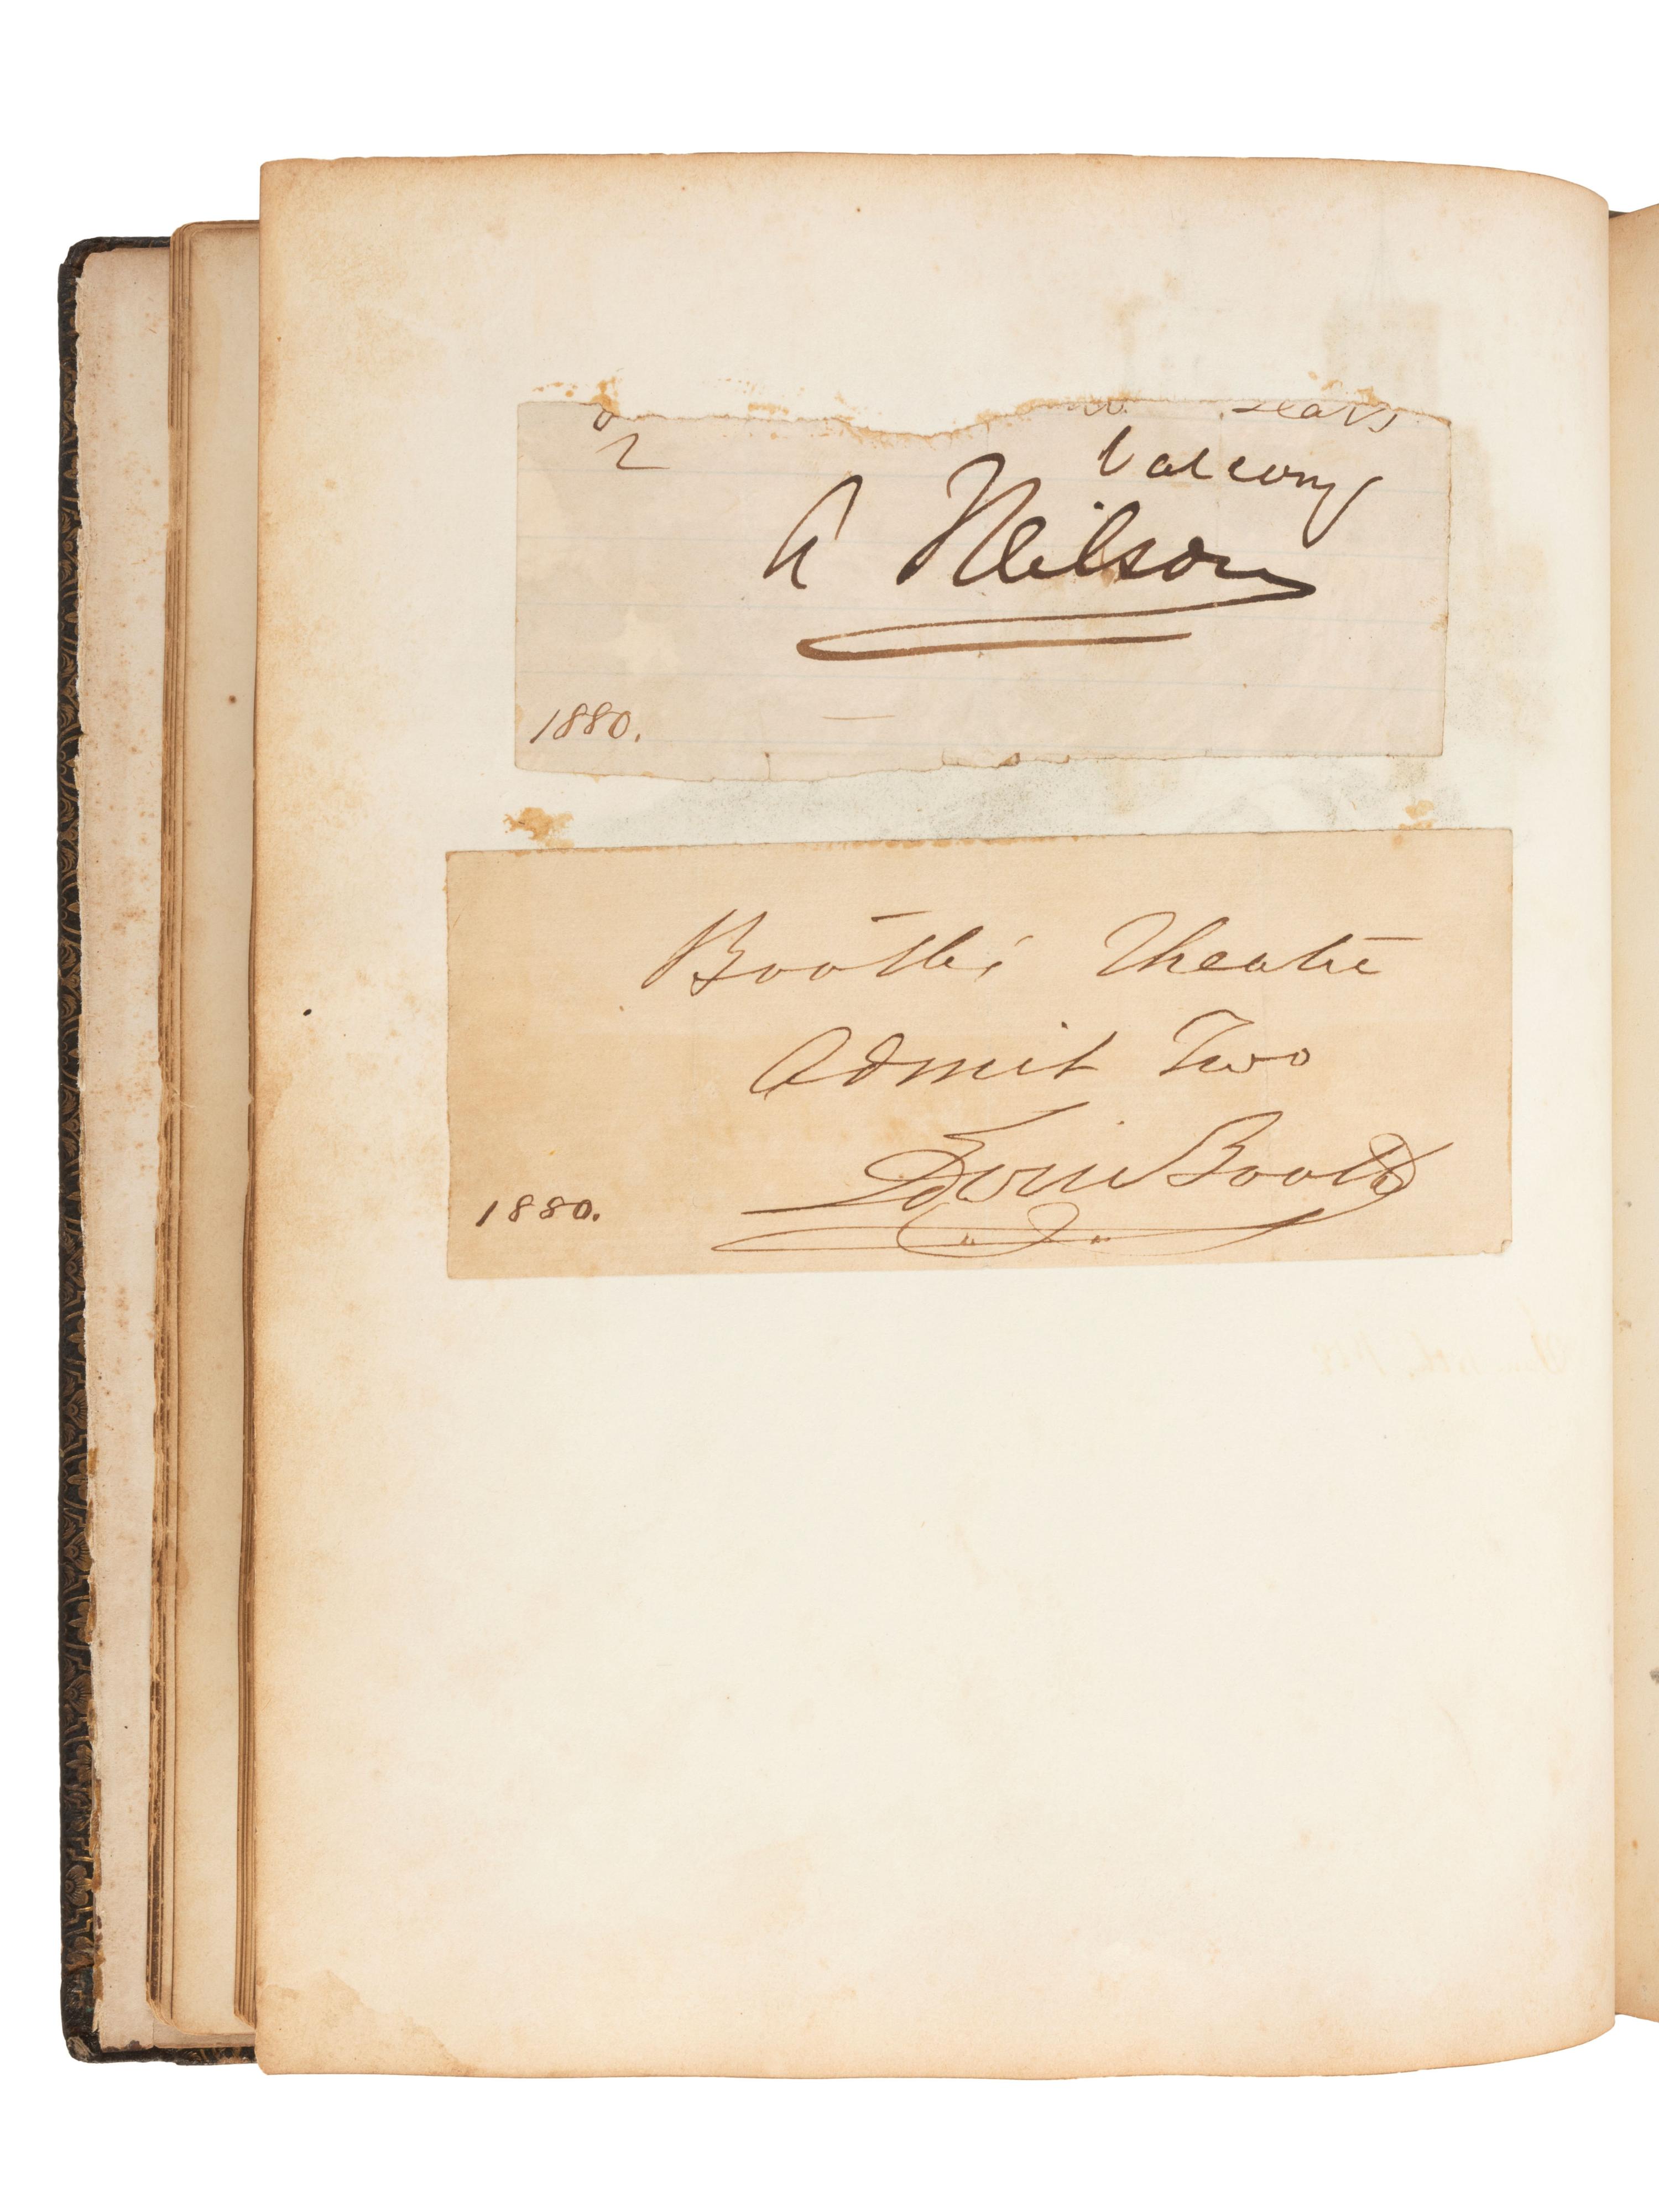 seats
2
balcony
A Neilson
1880.
Booth's Theatre
Admit Two
Edwin Booth
1880.